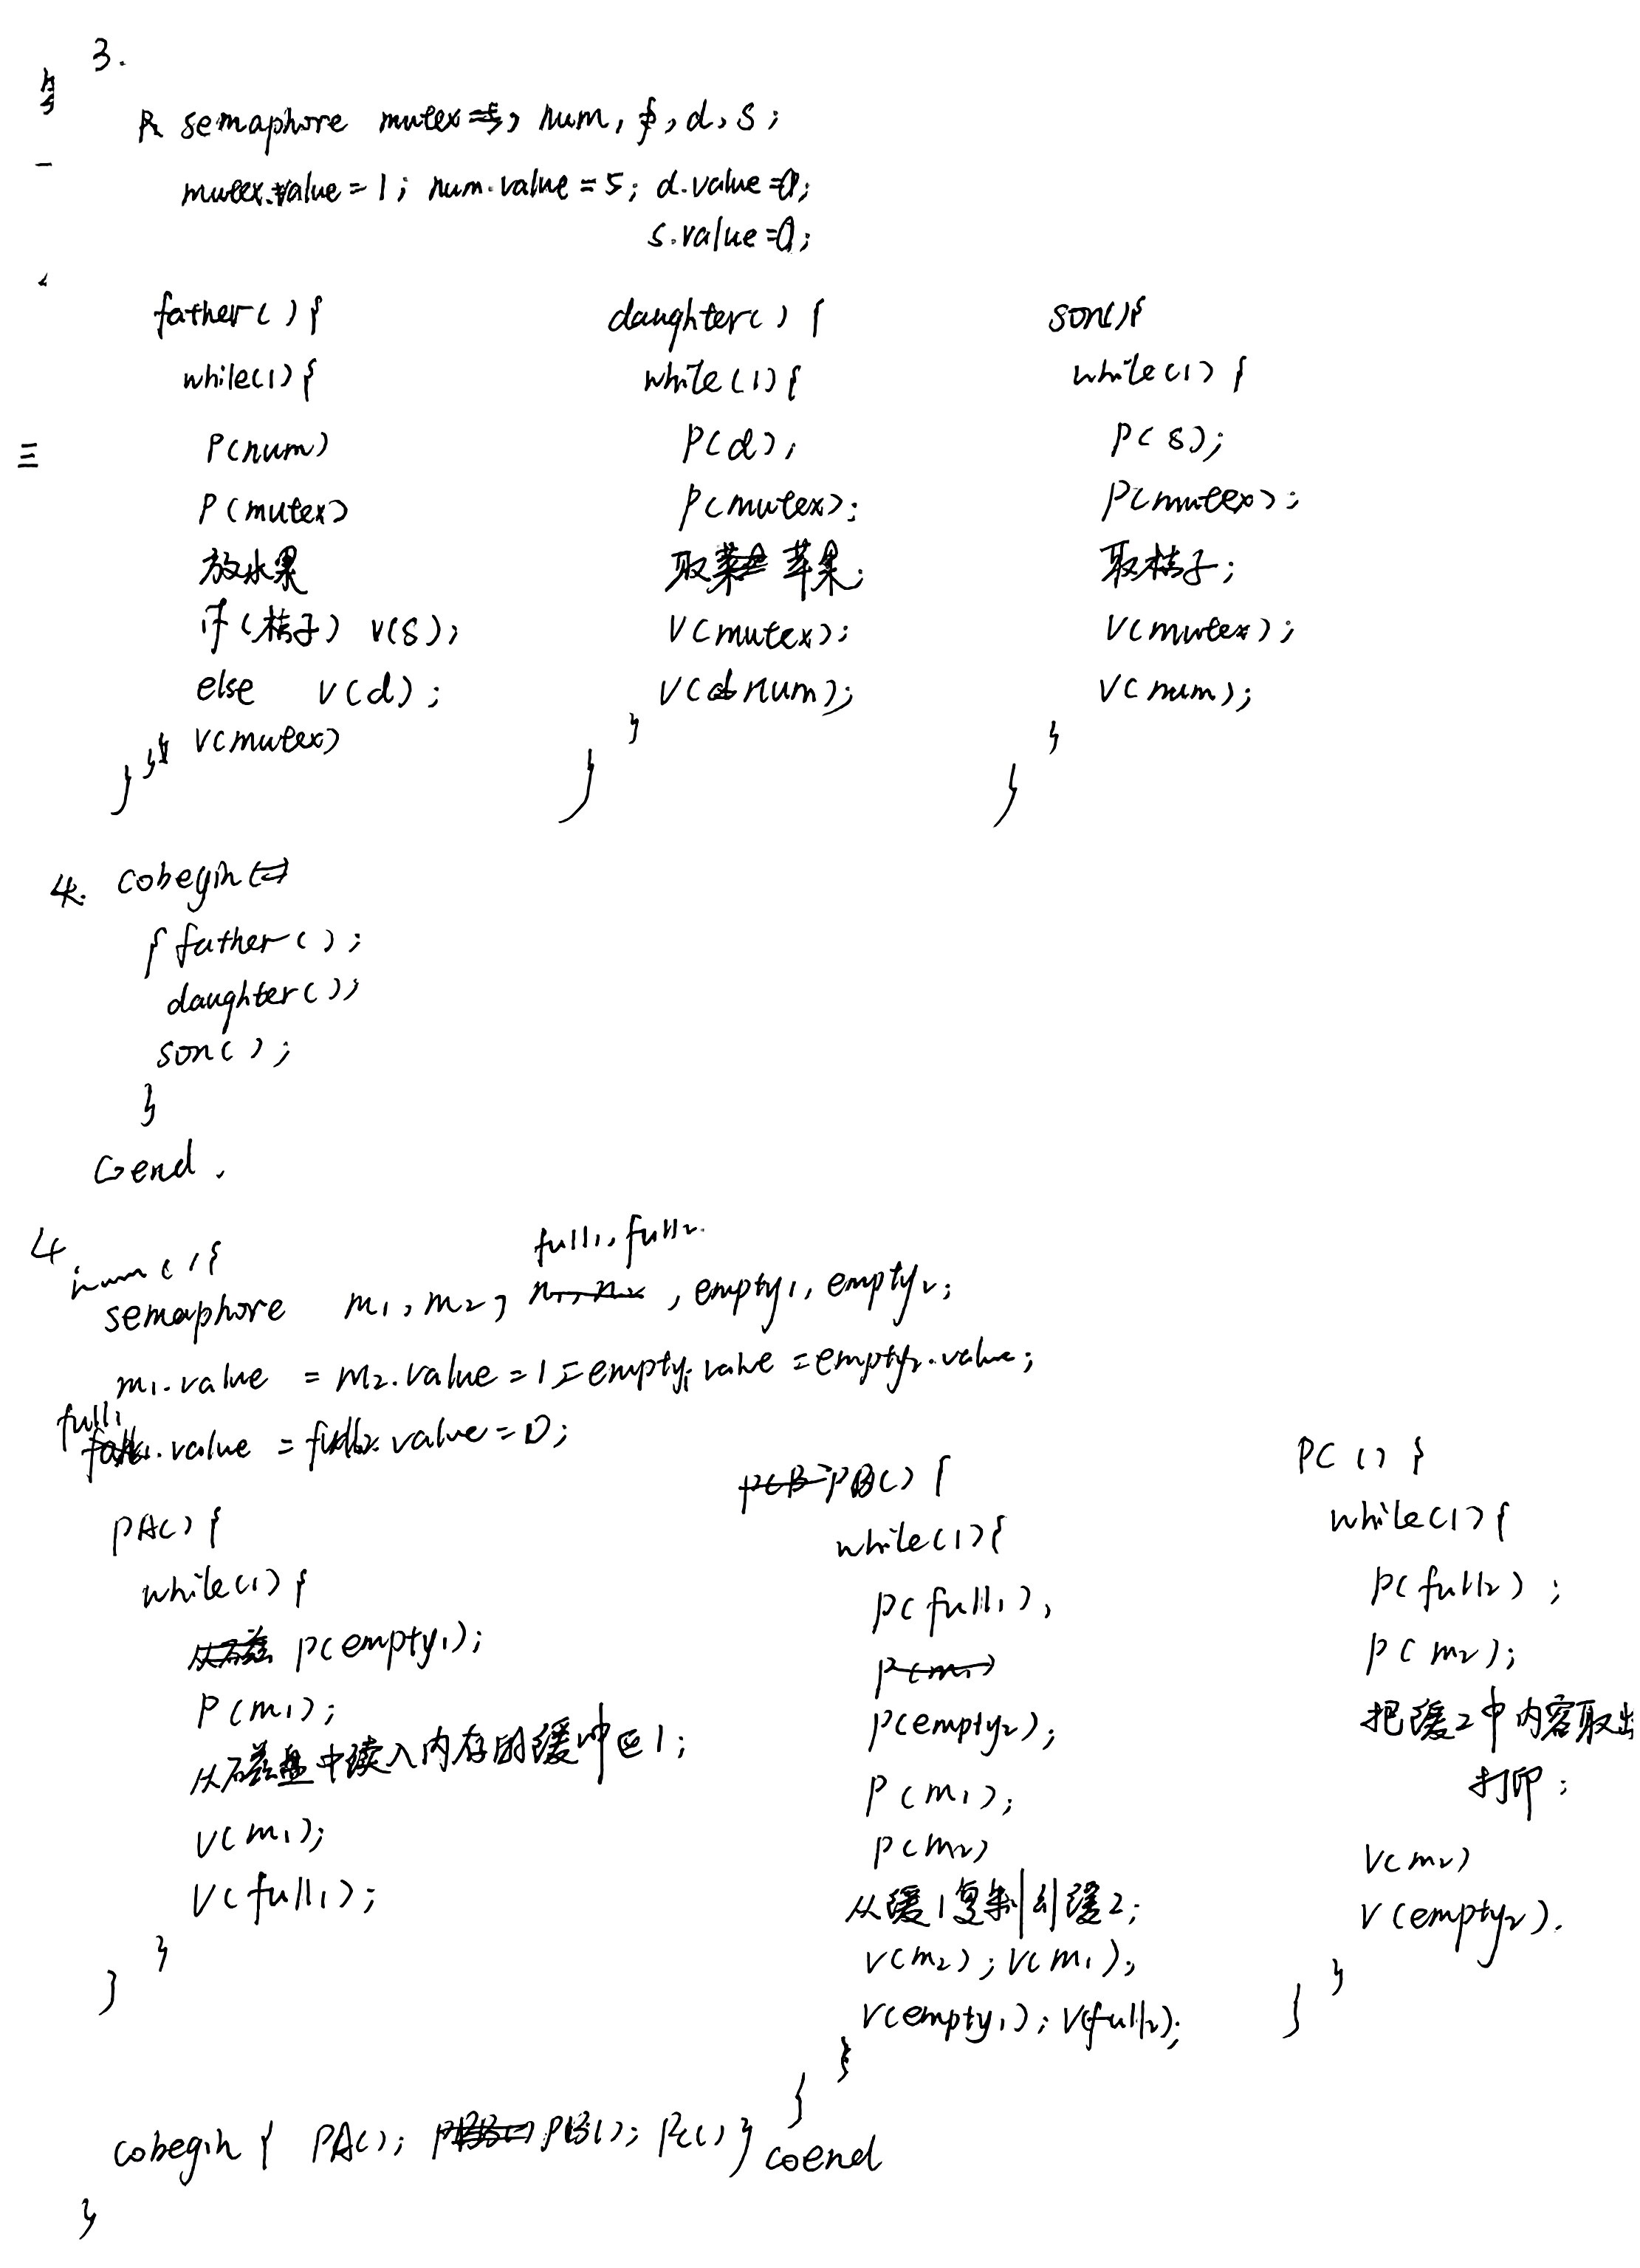 3.
semaphore mutex, num, d, s;
mutex.value = 1; num.value = 5; d.value = 0;
s.value = 0;
father() {
while(1) {
P(num)
P(mutex)
放水果
if(桔子) V(s);
else V(d);
V(mutex)
}
}
daughter() {
while(1) {
P(d);
P(mutex);
取苹果;
V(mutex);
V(num);
}
}
son() {
while(1) {
P(s);
P(mutex);
取桔子;
V(mutex);
V(num);
}
}
4. cobegin
{ father();
daughter();
son();
}
coend.
4
() {
full1, full2.
semaphore m1, m2, , empty1, empty2;
m1.value = m2.value = 1 = empty1.value = empty2.value;
full1.value = full2.value = 0;
PA() {
while(1) {
P(empty1);
P(m1);
从磁盘中读入内存的缓冲区1;
V(m1);
V(full1);
}
}
PB() {
while(1) {
P(full1);
P(empty2);
P(m1);
P(m2)
从缓1复制到缓2;
V(m2); V(m1);
V(empty1); V(full2);
}
}
PC() {
while(1) {
P(full2);
P(m2);
把缓2中内容取出
打印;
V(m2)
V(empty2).
}
}
cobegin { PA(); PB(); PC() } coend
}
三